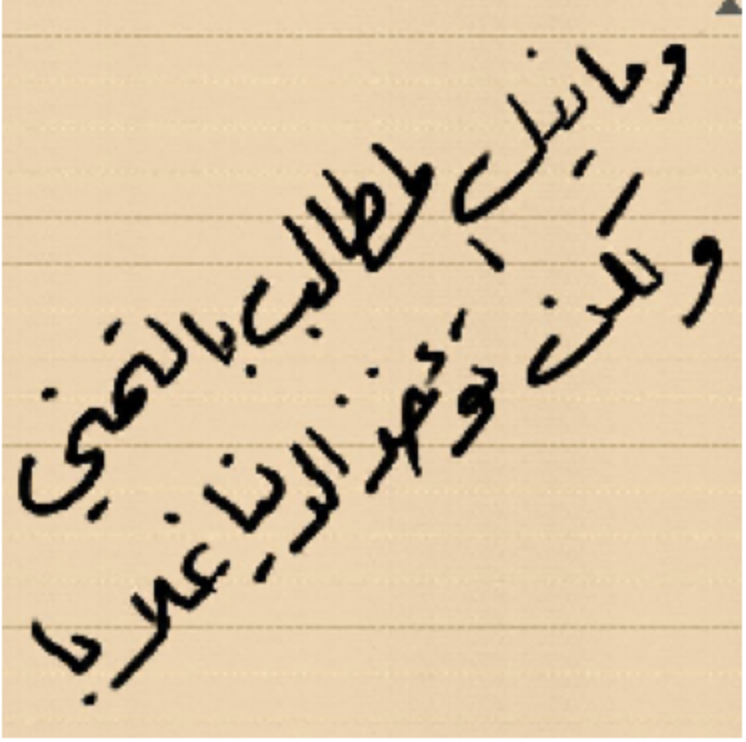 وما نيل المطالب بالتمني
ولكن تؤخذ الدنيا غلابا